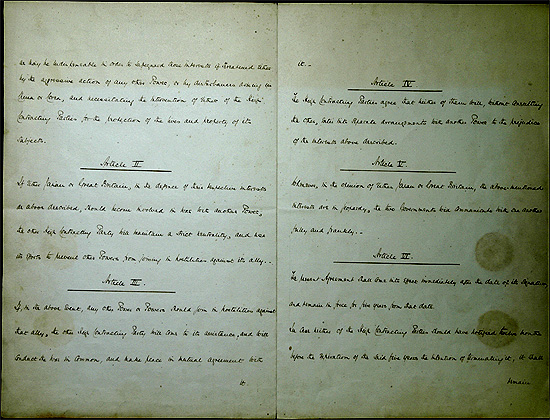 as may be indispensable in order to safeguard those interests if threatened either
by the aggressive action of any other Power, or by disturbances arising in
China or Corea, and necessitating the intervention of either of the High
Contracting Parties for the protection of the lives and property of its
subjects.
Article II
If either Japan or Great Britain, in the defence of their respective interests
as above described, should become involved in war with another Power,
the other High Contracting Party will maintain a strict neutrality, and use
its efforts to prevent other Powers from joining in hostilities against its ally.
Article III
If, in the above event, any other Power or Powers should join in hostilities against
that ally, the other High Contracting Party will come to its assistance, and will
conduct the war in common, and make peace in mutual agreement with
it.
it.-
Article IV
The High Contracting Parties agree that neither of them will, without consulting
the other, enter into separate arrangements with another Power to the prejudice
of the interests above described.
Article V.
Whenever, in the opinion of either Japan or Great Britain, the above-mentioned
interests are in jeopardy, the two Governments will communicate with one another
fully and frankly.
Article VI.
The present Agreement shall come into effect immediately after the date of its signature,
and remain in force for five years from that date.
In case neither of the High Contracting Parties should have notified twelve months
before the expiration of the said five years the intention of terminating it, it shall
remain